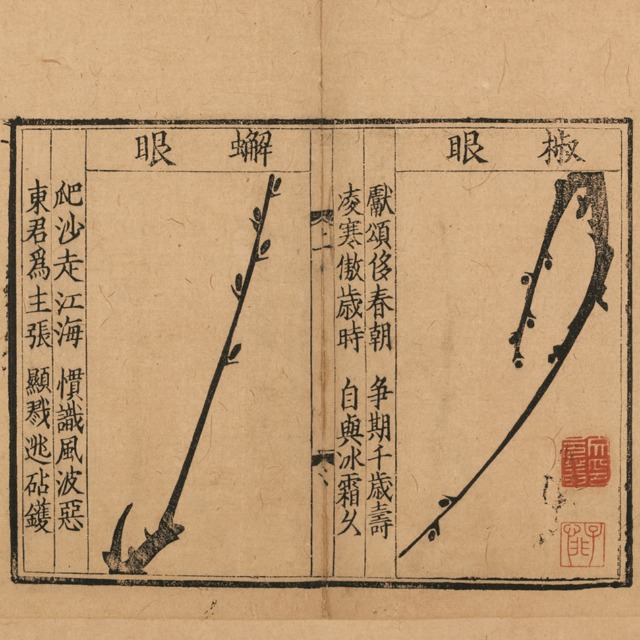 椒眼
獻頌侈春朝 爭期千歲壽
凌寒傲歲時 自與冰霜久
蠏眼
爬沙走江海 慣識風波惡
東君爲主張 顯戮逃砧鑊